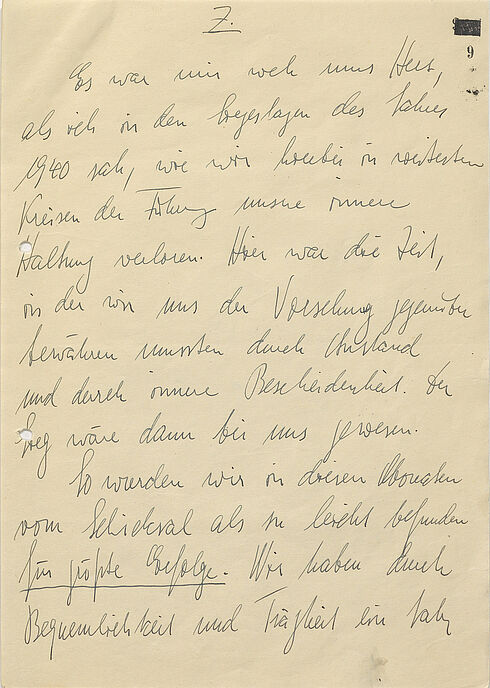 7.
9
Es war mir weh ums Herz,
als ich in den Siegestagen des Jahres
1940 sah, wie wir hierbei in weitesten
Kreisen der Führung unsre innere
Haltung verloren. Hier war die Zeit,
in der wir uns der Vorsehung gegenüber
bewähren mussten durch Anstand
und durch innere Bescheidenheit. Der
Sieg wäre dann bei uns gewesen.
So wurden wir in diesen Monaten
vom Schicksal als zu leicht befunden
für größte Erfolge. Wir haben durch
Bequemlichkeit und Trägheit ein Jahr